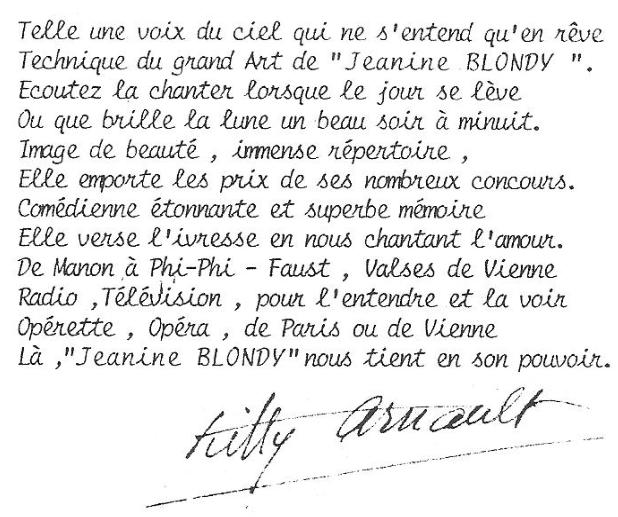 Telle une voix du ciel qui ne s'entend qu'en rêve
Technique du grand Art de "Jeanine BLONDY ".
Ecoutez la chanter lorsque le jour se lève
Ou que brille la lune un beau soir à minuit.
Image de beauté , immense répertoire ,
Elle emporte les prix de ses nombreux concours.
Comédienne étonnante et superbe mémoire
Elle verse l'ivresse en nous chantant l'amour.
De Manon à Phi-Phi - Faust , Valses de Vienne
Radio ,Télévision , pour l'entendre et la voir
Opérette , Opéra , de Paris ou de Vienne
Là ,"Jeanine BLONDY" nous tient en son pouvoir.
Kitty Arnault